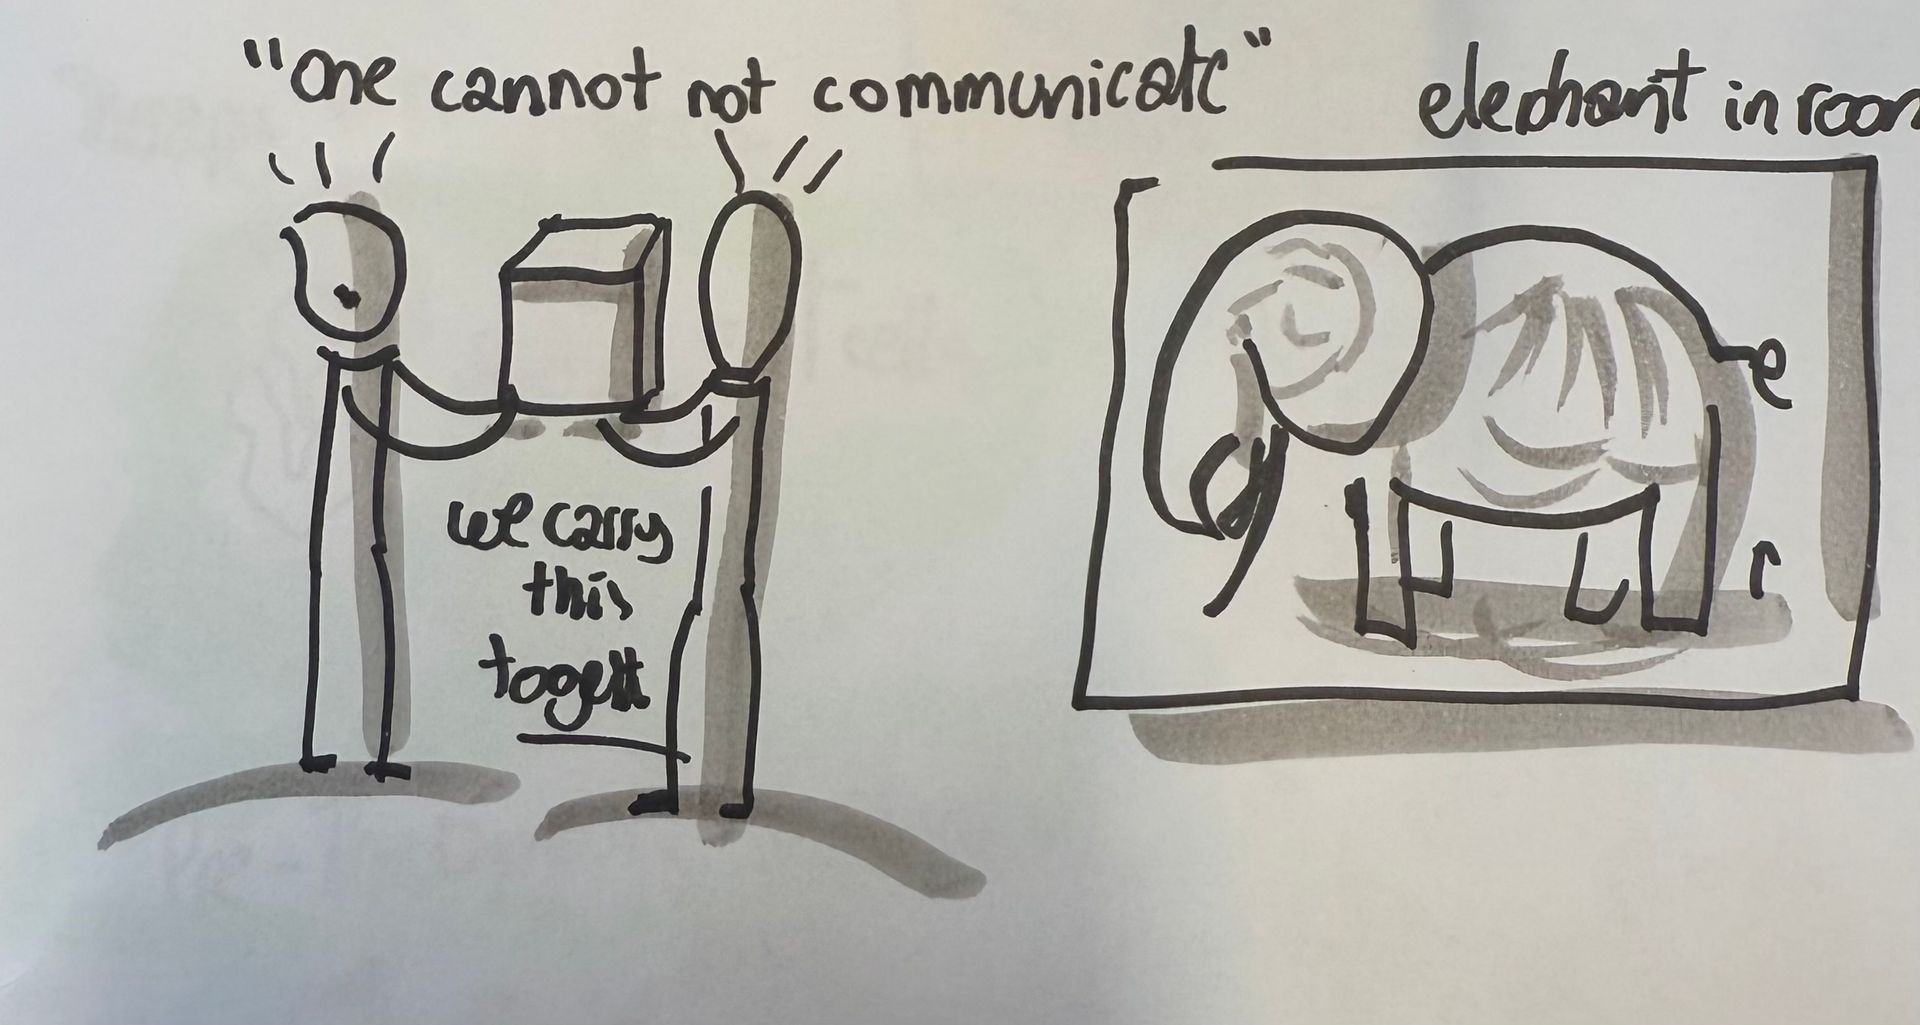 "one cannot not communicate"
elephant in room
we carry
this